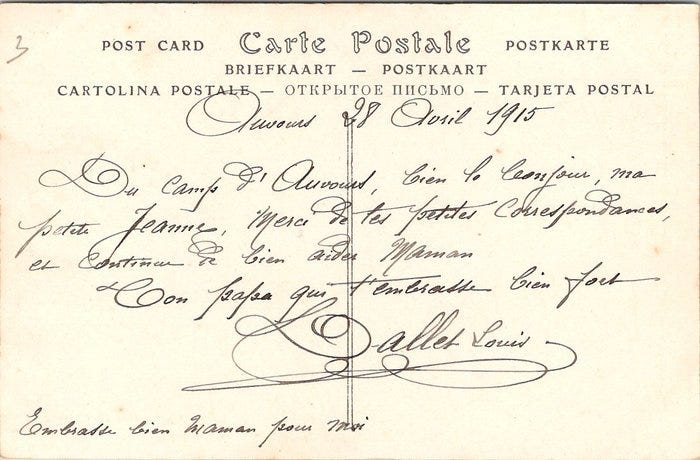 3
POST CARD Carte Postale POSTKARTE
BRIEFKAART — POSTKAART
CARTOLINA POSTALE — ОТКРЫТОЕ ПИСЬМО — TARJETA POSTAL
Auvours 28 Avril 1915
Du camp d'Auvours, bien le bonjour, ma
petite Jeanne, Merci de tes petites correspondances,
et continue de bien aider Maman
Ton papa qui t'embrasse bien fort
Dallet Louis
Embrasse bien Maman pour moi